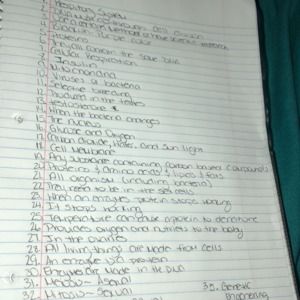 1. Respiratory System
5. Proteins
6. They all contain the same DNA
7. Cellular Respiration
8. Insulin
9. Mitochondria
10. Viruses or bacteria
11. Selective breeding
12. Produced in the testes
13. testosterone
14. When the bacteria changes
15. The nucleus
16. Glucose and Oxygen
17. Carbon dioxide, Water, and Sun light
18. Cell Membrane
19. Any substance containing carbon based compounds
20. Proteins & Amino acids & lipids & fats
21. All organism (including bacteria)
22. They need to be in the sex cells
23. When an enzymes protein stops working
24. It stops working
25. Temperature can cause a protein to denature
26. Provides oxygen and nutrients to the baby
27. In the ovaries
28. All living things are made from cells
29. An enzyme is a protein
30. Enzymes are made in the DNA
31. Meiosis - Asexual
32. Mitosis - Sexual
35. Genetic Engineering